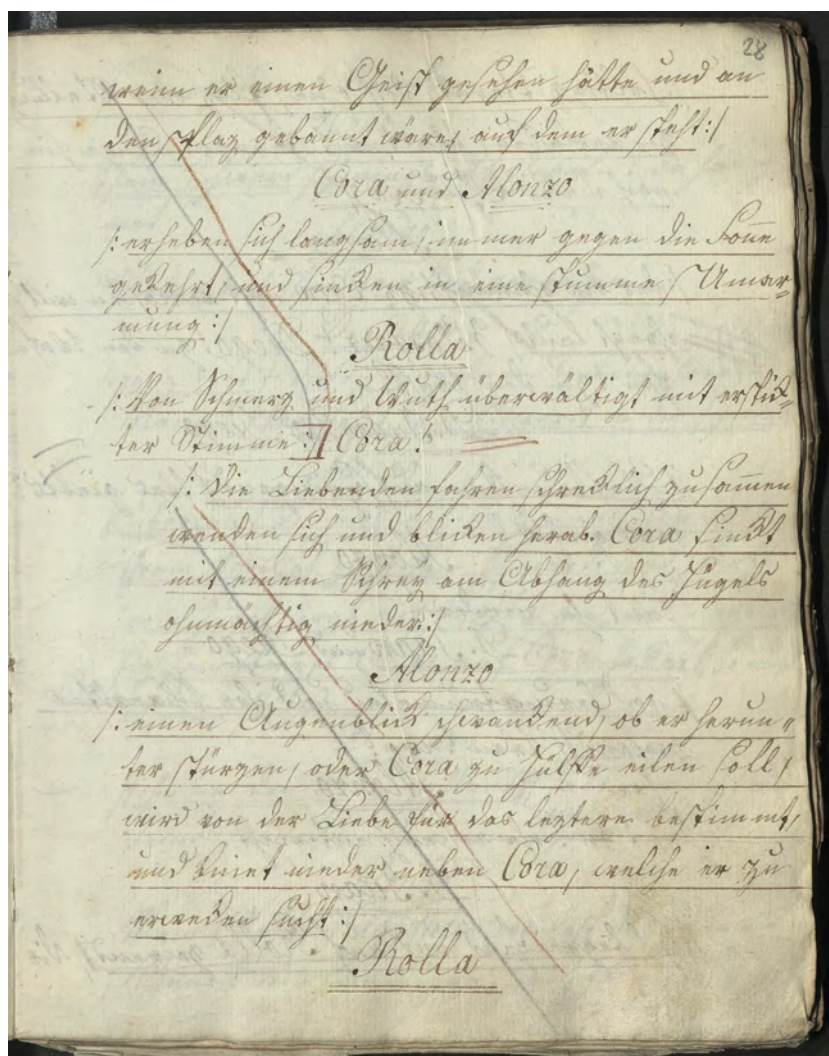 28
wenn er einen Geist gesehen hätte und an
den Plaz gebannt wäre, auf dem er steht :/
Cora und Alonzo
/: erheben sich langsam, immer gegen die Soñe
gekehrt, und sinken in eine stumme Umar„
mung :/
Rolla
/: Von Schmerz und Wuth überwältigt mit erstik„
ter Stimme :/ Cora!
/: Die Liebenden fahren schreklich zusam̄en
wenden sich und bliken herab. Cora sinkt
mit einem Schrey am Abhang des Hügels
ohnmächtig nieder :/
Alonzo
/: einen Augenblik schwankend, ob er herun„
ter stürzen, oder Cora zu Hülffe eilen soll,
wird von der Liebe für das leztere bestimmt,
und kniet nieder neben Cora, welche er zu
erweken sucht :/
Rolla